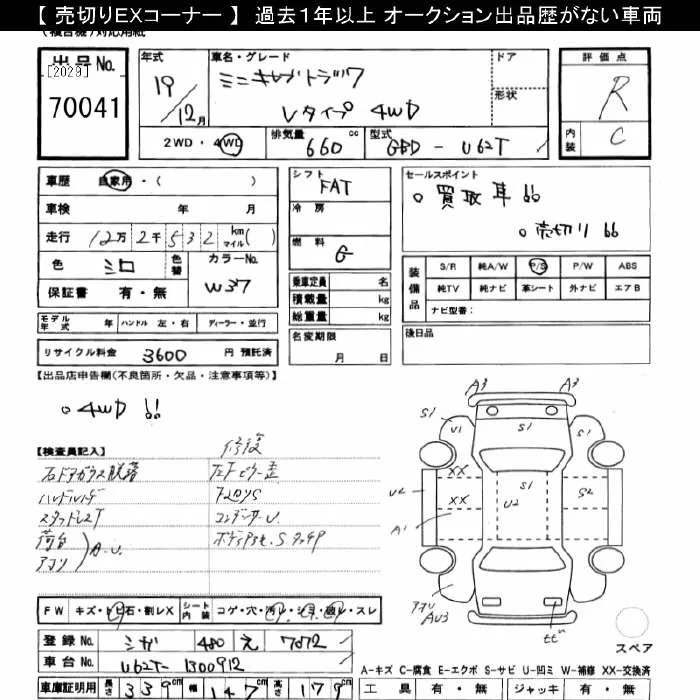 【 売切りEXコーナー 】 過去1年以上 オークション出品歴がない車両
出品No.
[2029]
70041
年式
19/12月
車名・グレード
ミニキャブトラック
Vタイプ 4WD
ドア
形状
評価点
R
内装
C
2WD・4WD
排気量
660
cc
型式
GBD-U62T
車歴
自家用・( )
車検 年 月
走行 12万2千532 km マイル( )
色
シロ
色替
カラーNo.
W37
保証書 有・無
シフト
FAT
冷房
燃料
G
乗車定員 名
積載量 kg
総重量 kg
名変期限
月 日
セールスポイント
○ 買取車!!
○ 売切り!!
装備品
S/R 純A/W P/S P/W ABS
純TV 純ナビ 革シート 外ナビ エアB
ナビ型番:
後日品
モデル年式 年 ハンドル 左・右 ディーラー・並行
リサイクル料金 3600 円 預託済
【出品店申告欄(不良箇所・欠品・注意事項等)】
○ 4WD !!
【検査員記入】
修復
右ドアガラス脱落
ハンドルハゲ
スタッドレスT
荷台
アオリ
A.U.
コンデンサーU
A3
A3
S1
U1
S1
S1
XX
XX
S1
U2
U2
S2
A1
アオリ
AU3
セビ
スペア
FW キズ・トビ石・割レX
シート内装
コゲ・穴・汚レ・シミ・破レ・スレ
登録No. シガ 480 え 7072
車台No. U62T-1300912
車庫証明用 長さ 339cm 幅 147cm 高さ 179cm
A-キズ C-腐食 E-エクボ S-サビ U-凹ミ W-補修 XX-交換済
工具 有・無 ジャッキ 有・無